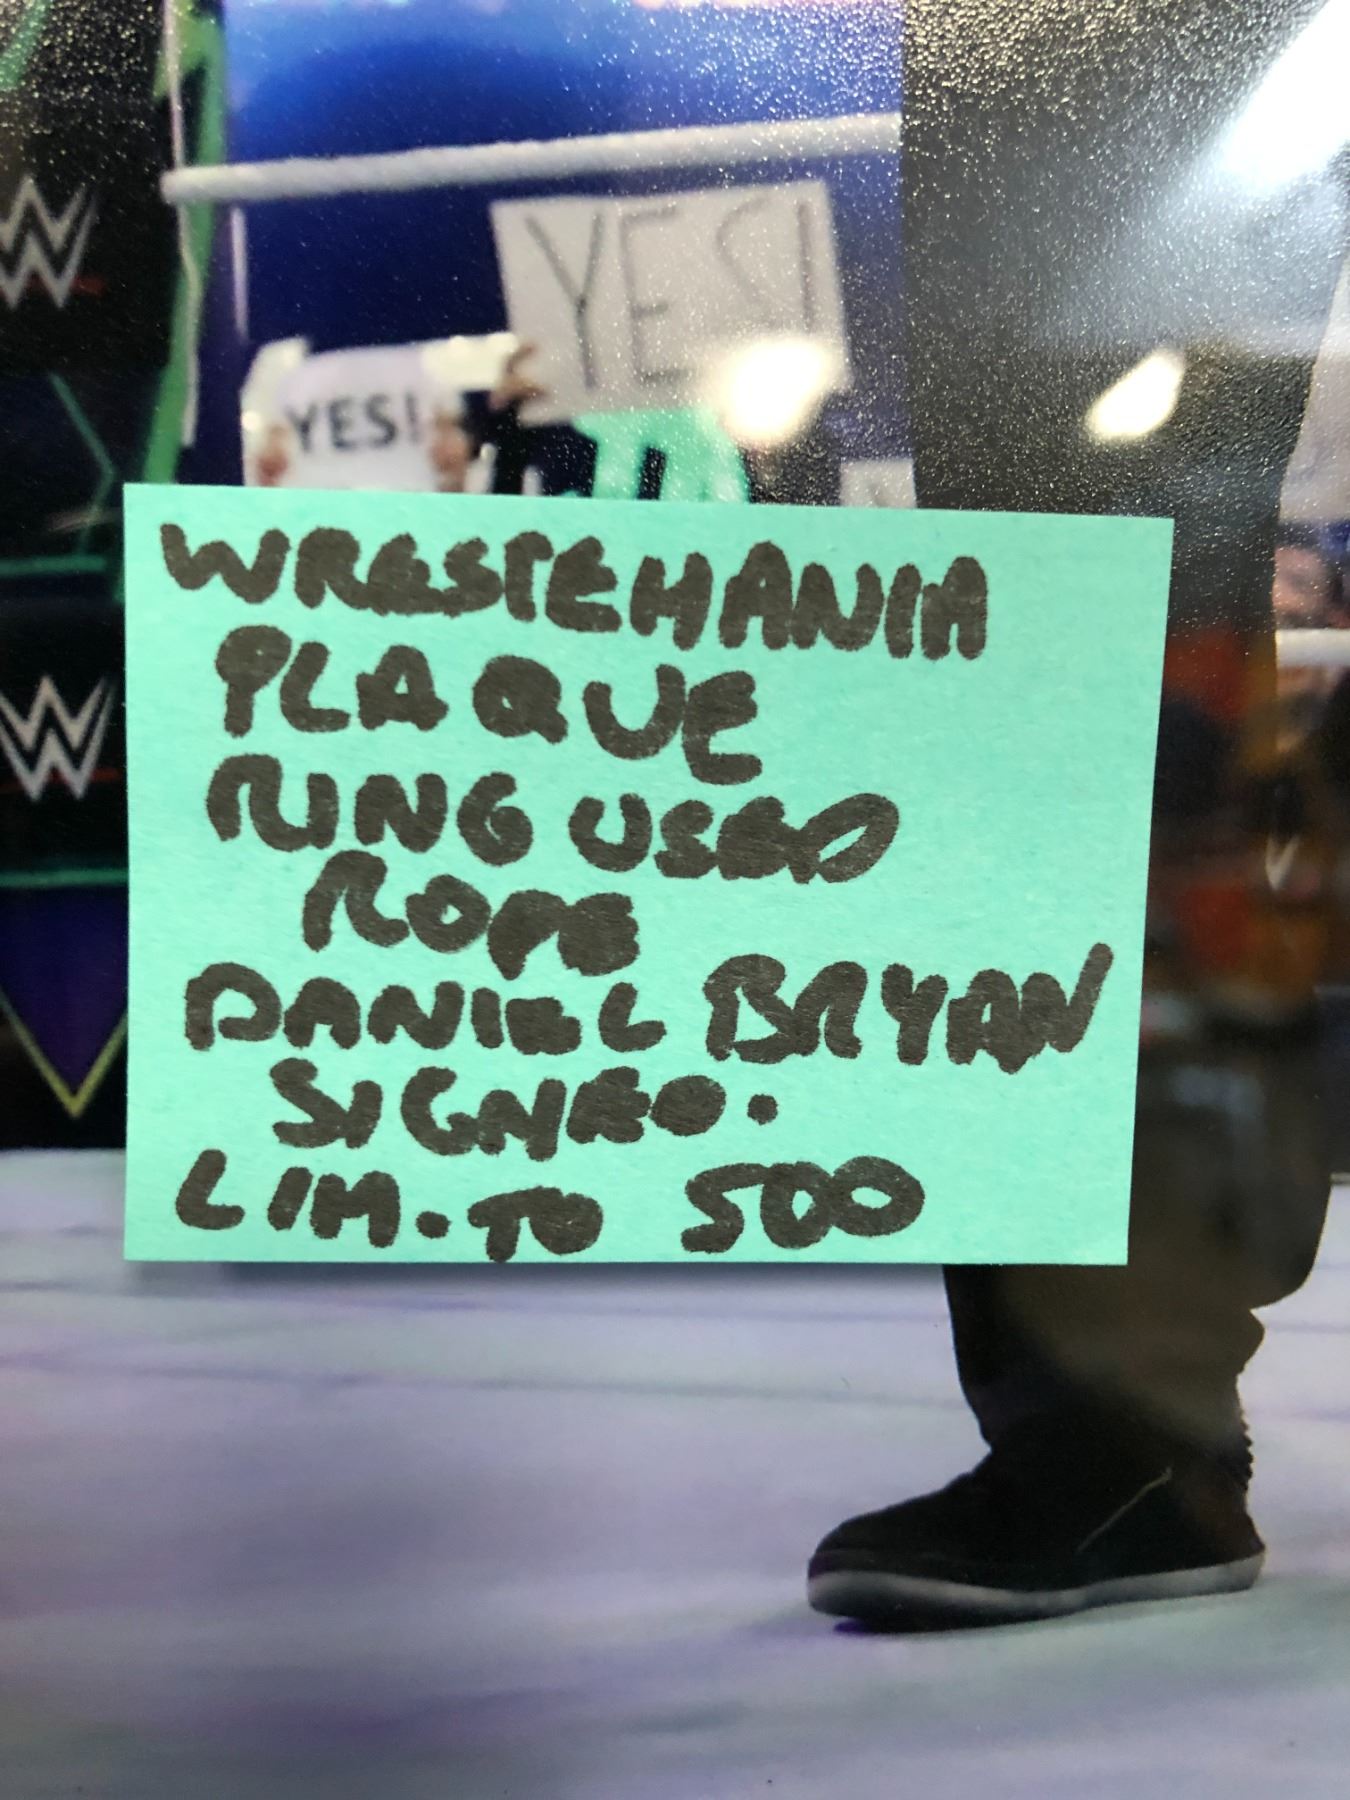 W
YES!
YES!
W
WRESTEMANIA
PLAQUE
RING USED
ROPE
DANIEL BRYAN
SIGNED.
LIM. TO 500